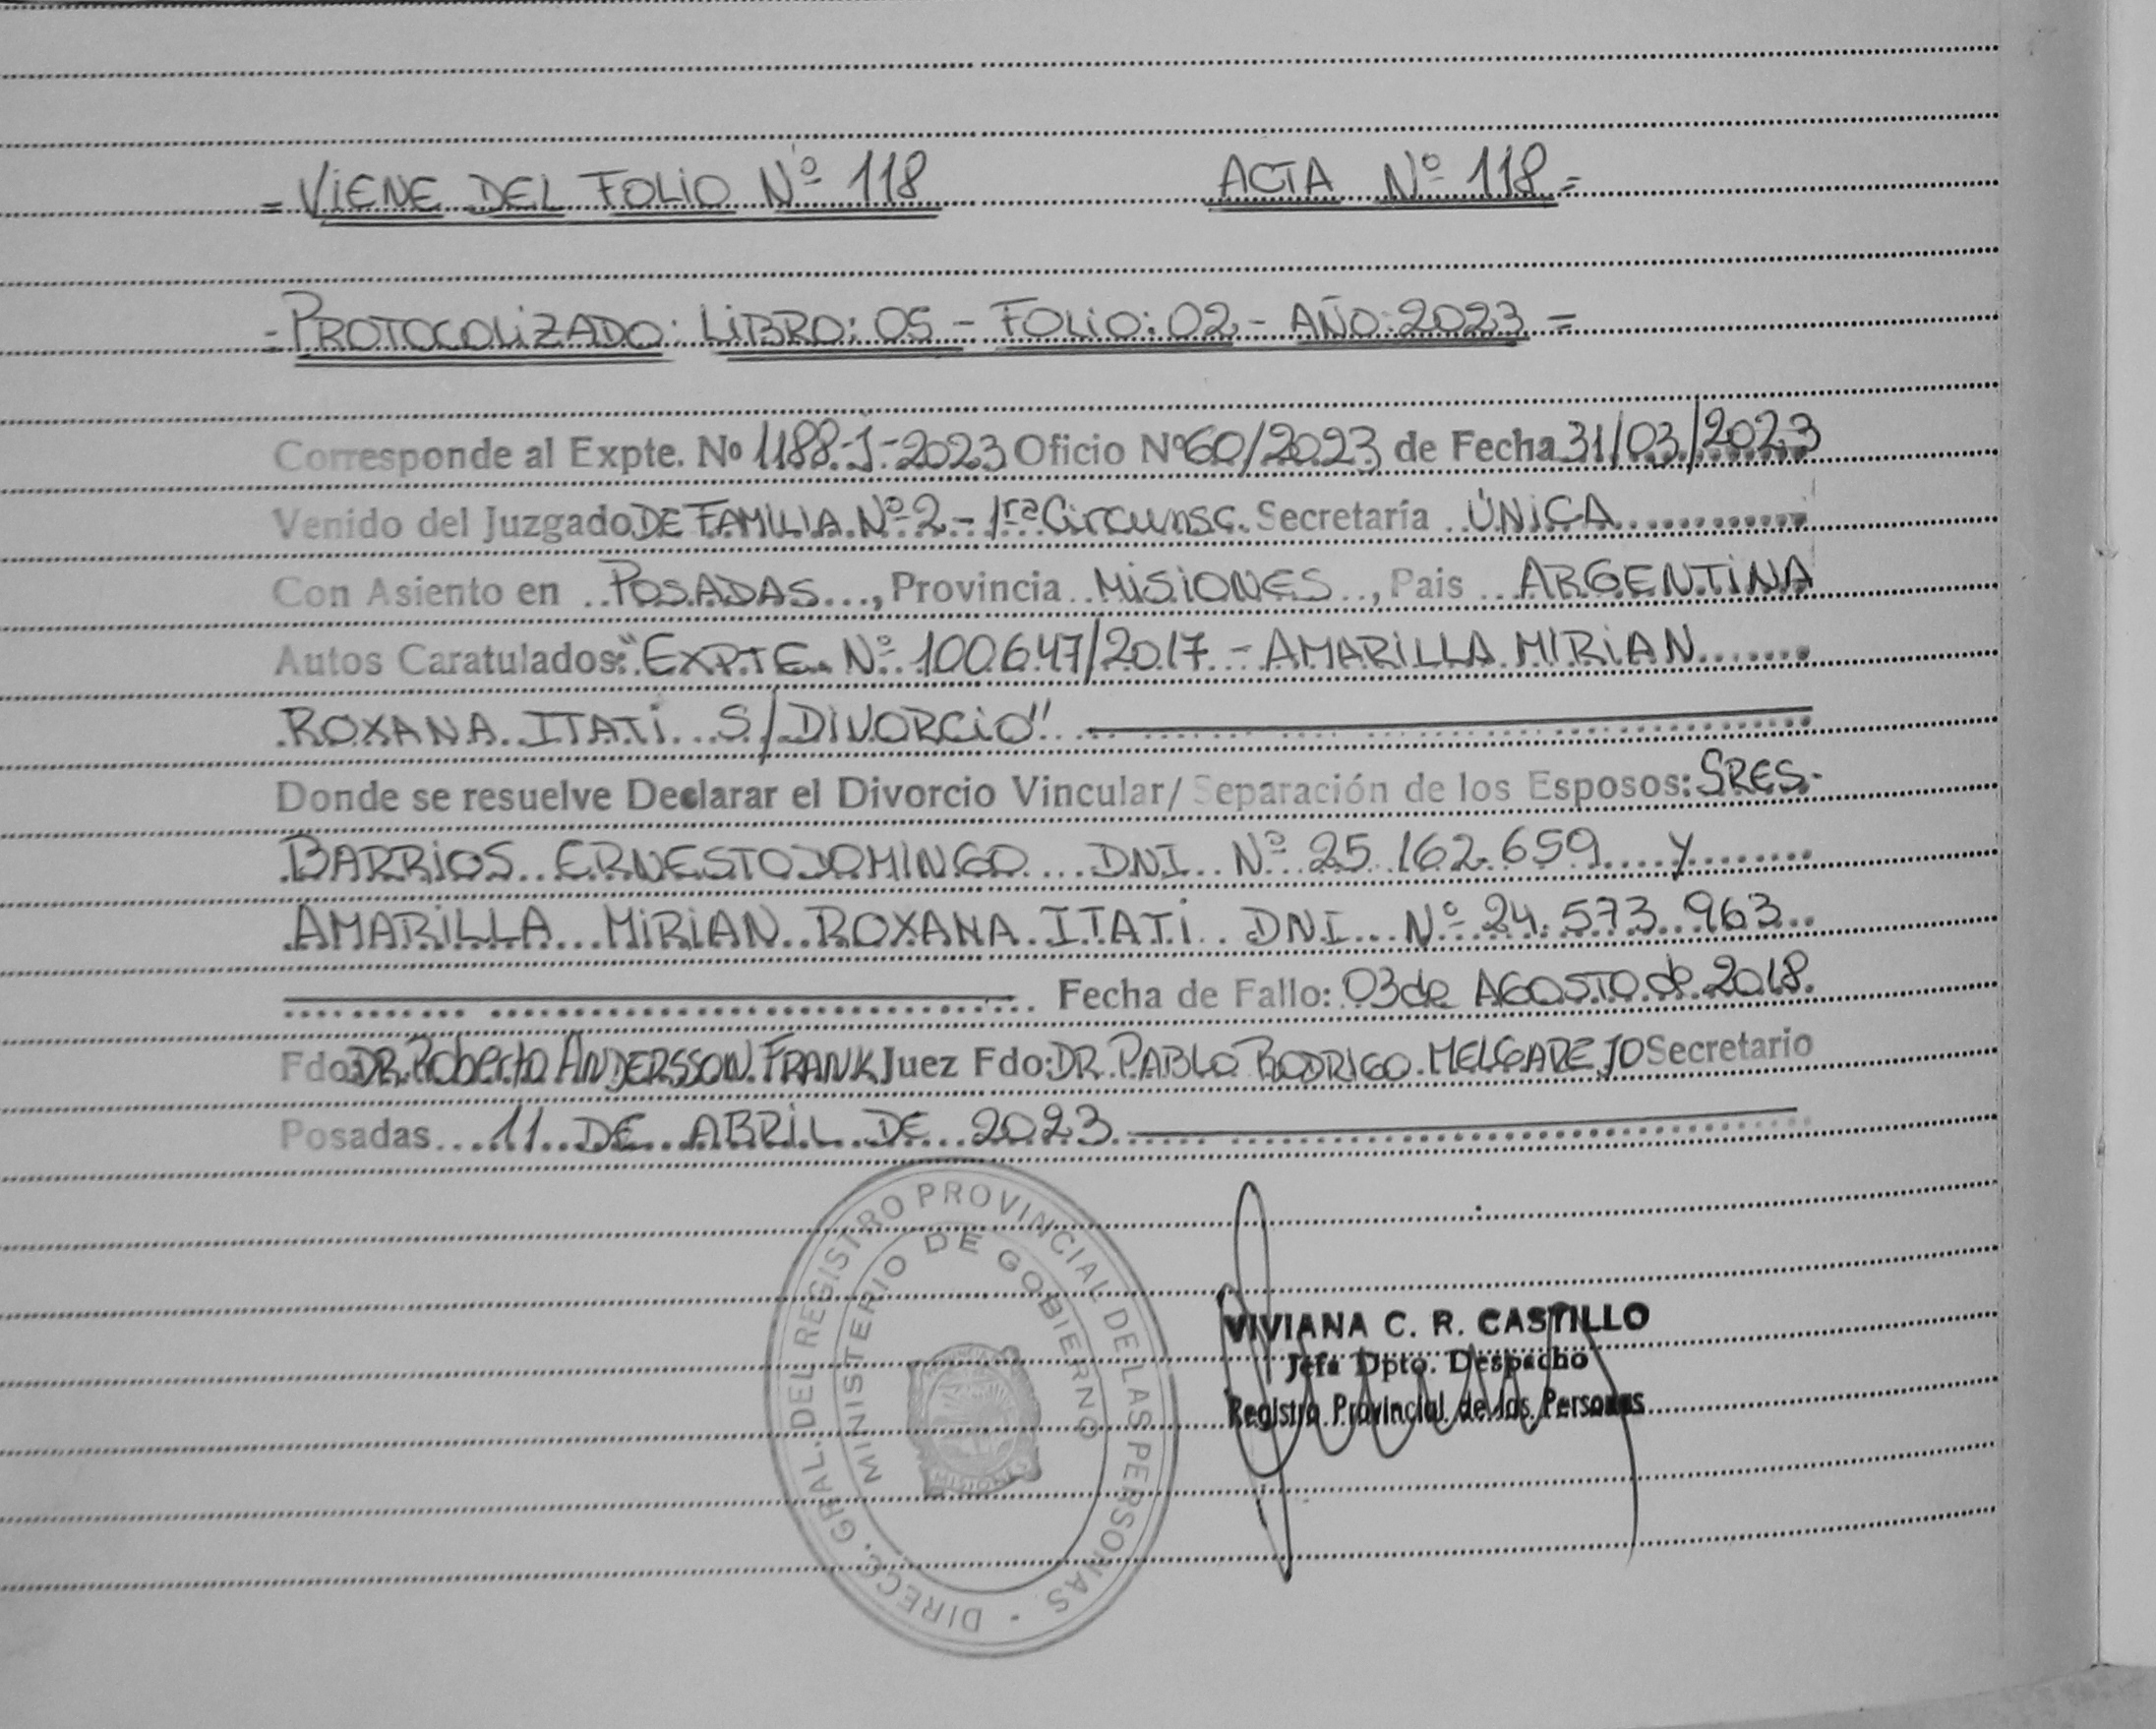 = VIENE DEL FOLIO Nº 118 ACTA Nº 118 =
= PROTOCOLIZADO: LIBRO: 05 - FOLIO: 02 - AÑO: 2023 =
Corresponde al Expte. Nº 1188-J-2023 Oficio Nº 60/2023 de Fecha 31/03/2023
Venido del Juzgado DE FAMILIA Nº 2 - 1ra Circunsc. Secretaría ÚNICA
Con Asiento en POSADAS, Provincia MISIONES, Pais ARGENTINA
Autos Caratulados: "EXPTE. Nº 100647/2017 - AMARILLA MIRIAN
ROXANA ITATI S/DIVORCIO"
Donde se resuelve Declarar el Divorcio Vincular/ Separación de los Esposos: SRES.
BARRIOS ERNESTO DOMINGO DNI Nº 25.162.659 y
AMARILLA MIRIAN ROXANA ITATI DNI Nº 24.573.963
Fecha de Fallo: 03 de AGOSTO de 2018.
Fdo: DR. Roberto ANDERSSON FRANK Juez Fdo: DR. PABLO RODRIGO MELGAREJO Secretario
Posadas 11 DE ABRIL DE 2023
DIRECC. GRAL. DEL REGISTRO PROVINCIAL DE LAS PERSONAS -
MINISTERIO DE GOBIERNO
MISIONES
VIVIANA C. R. CASTILLO
Jefa Dpto. Despacho
Registro Provincial de las Personas